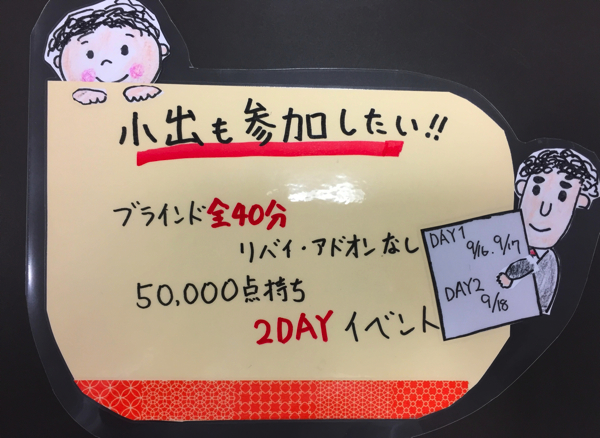 小出も参加したい!!
ブラインド全40分
リバイ・アドオンなし
50,000点持ち
2DAYイベント
DAY1
9/16.9/17
DAY2
9/18